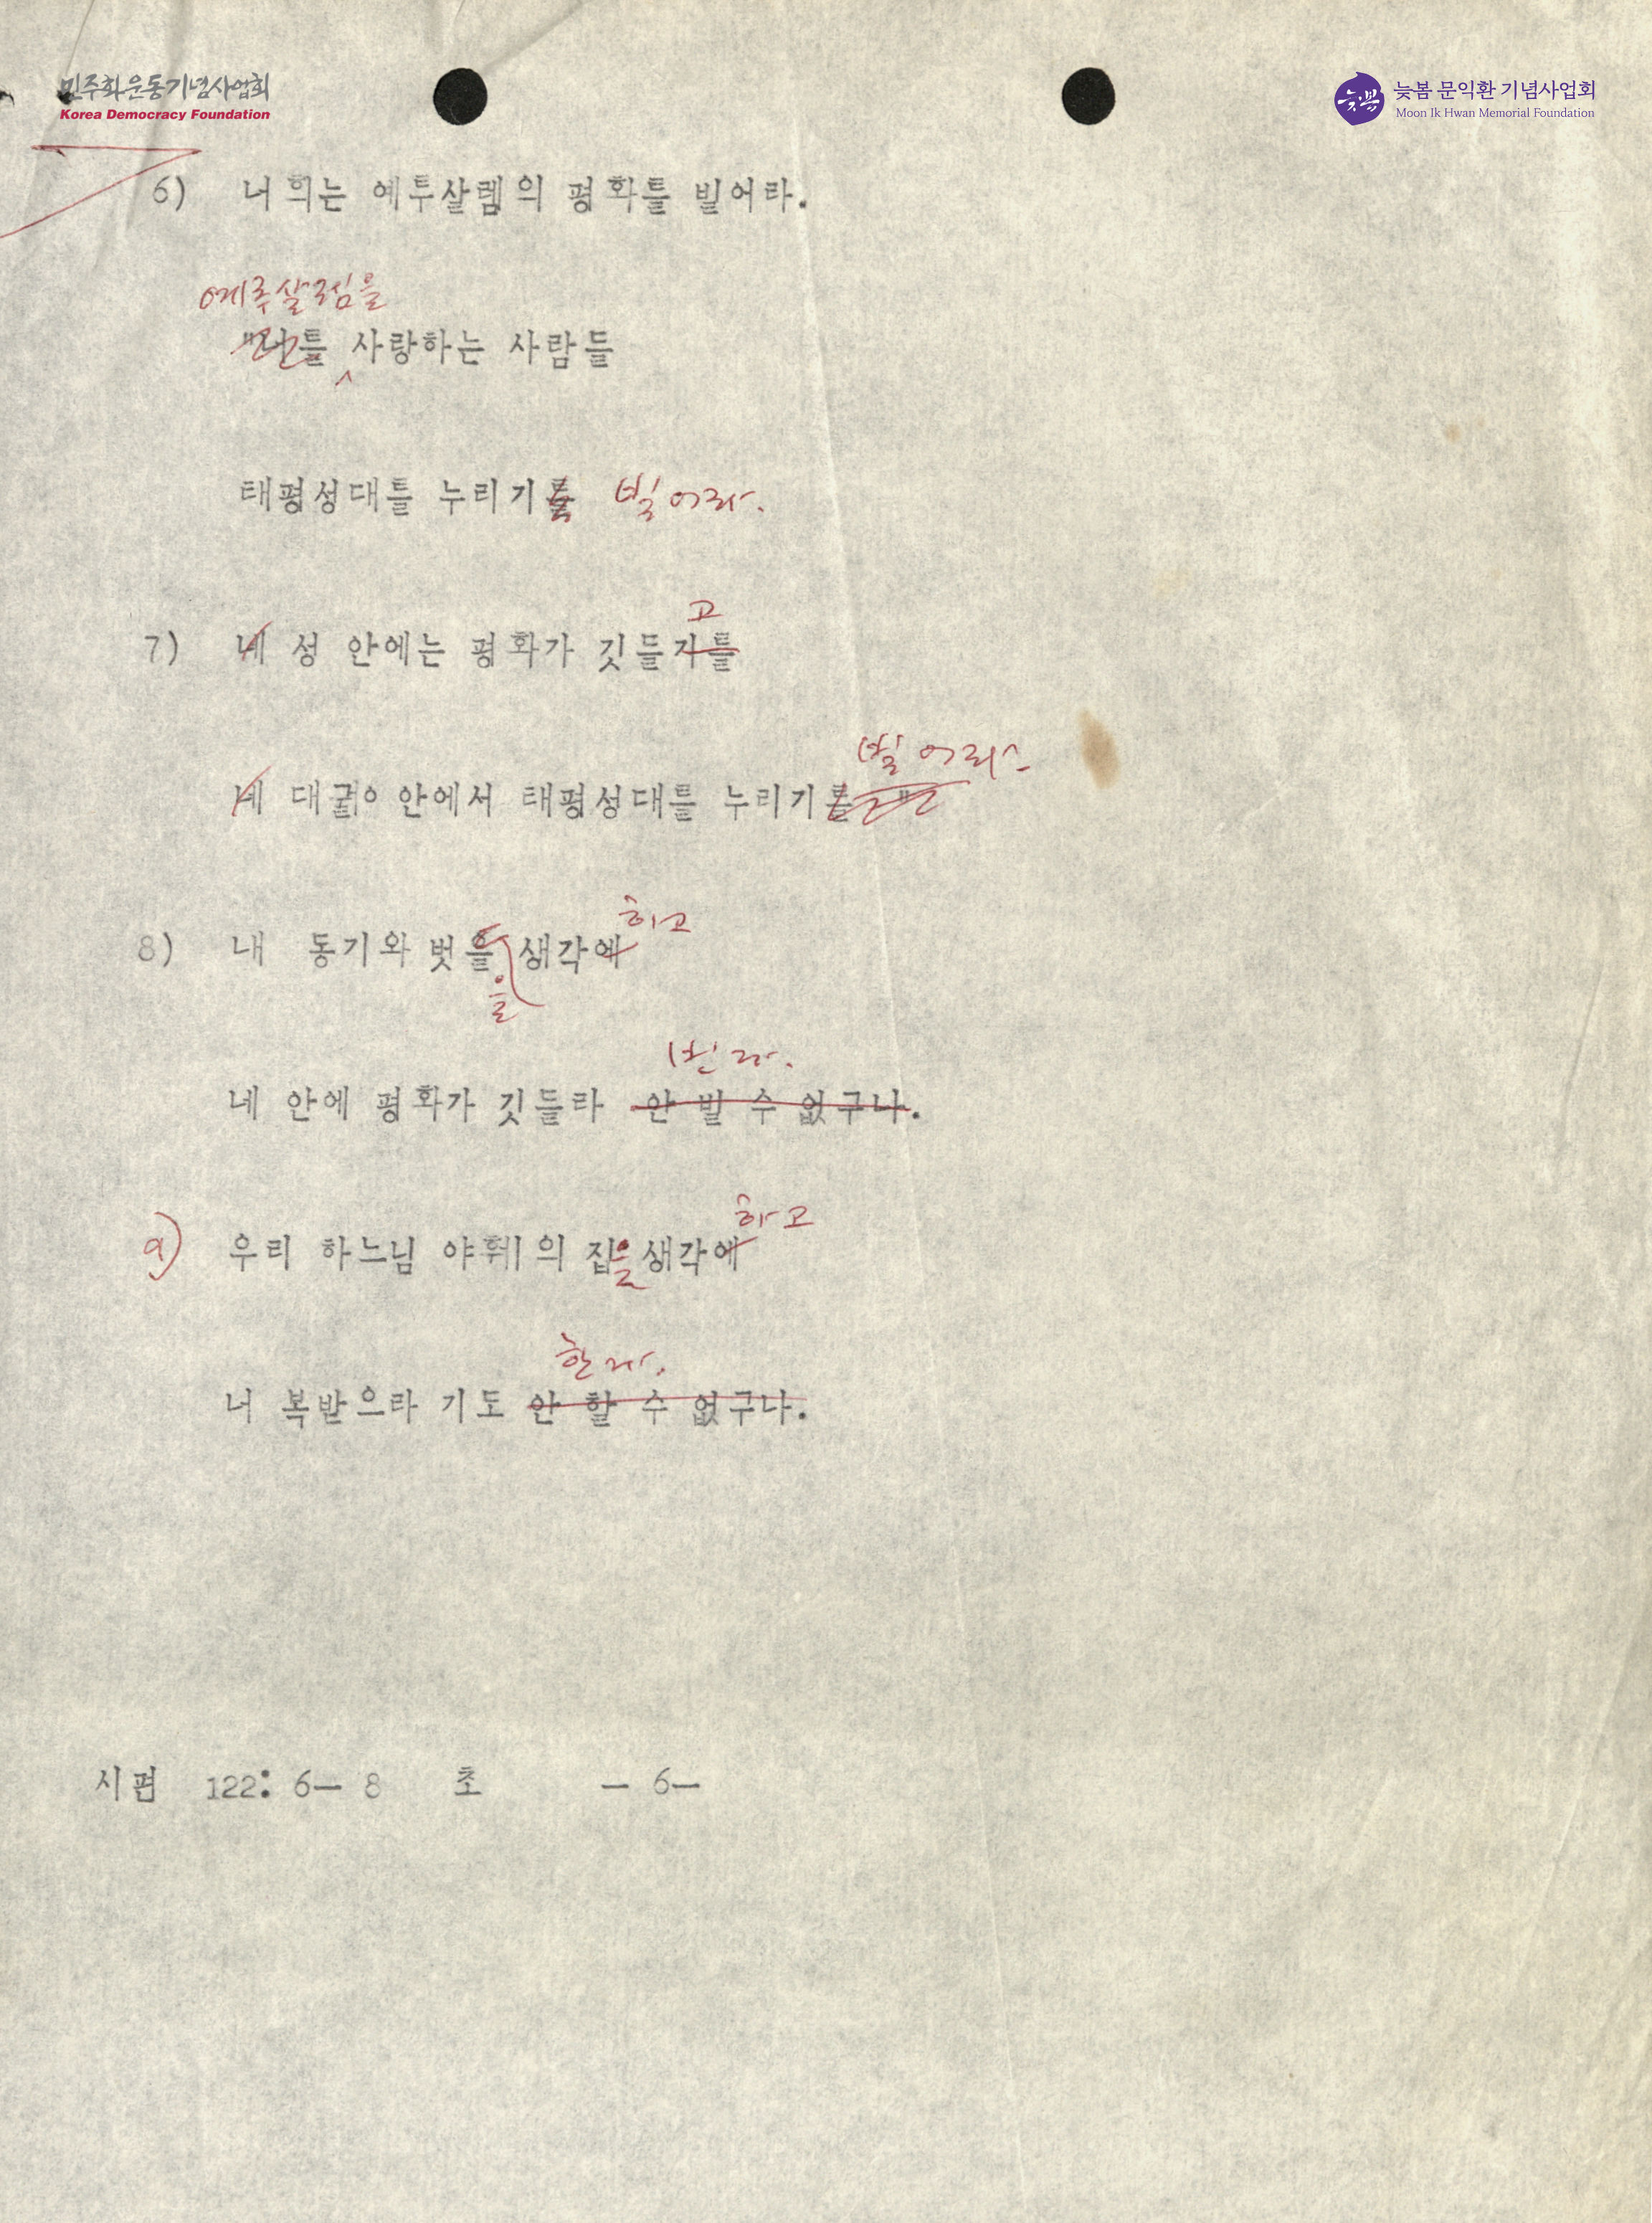 민주화운동기념사업회
Korea Democracy Foundation
늦봄
늦봄 문익환 기념사업회
Moon Ik Hwan Memorial Foundation
6) 너희는 예루살렘의 평화를 빌어라.
예루살렘을
를 사랑하는 사람들
태평성대를 누리기를 빌어라.
고
7) 네 성 안에는 평화가 깃들기를
빌어라
네 대궐 안에서 태평성대를 누리기를
하고
8) 내 동기와 벗을 생각에
을
빈다.
네 안에 평화가 깃들라 안 빌 수 없구나.
하고
9) 우리 하느님 야훼의 집을 생각에
한다.
너 복받으라 기도 안 할 수 없구나.
시편 122: 6- 8 초 - 6-